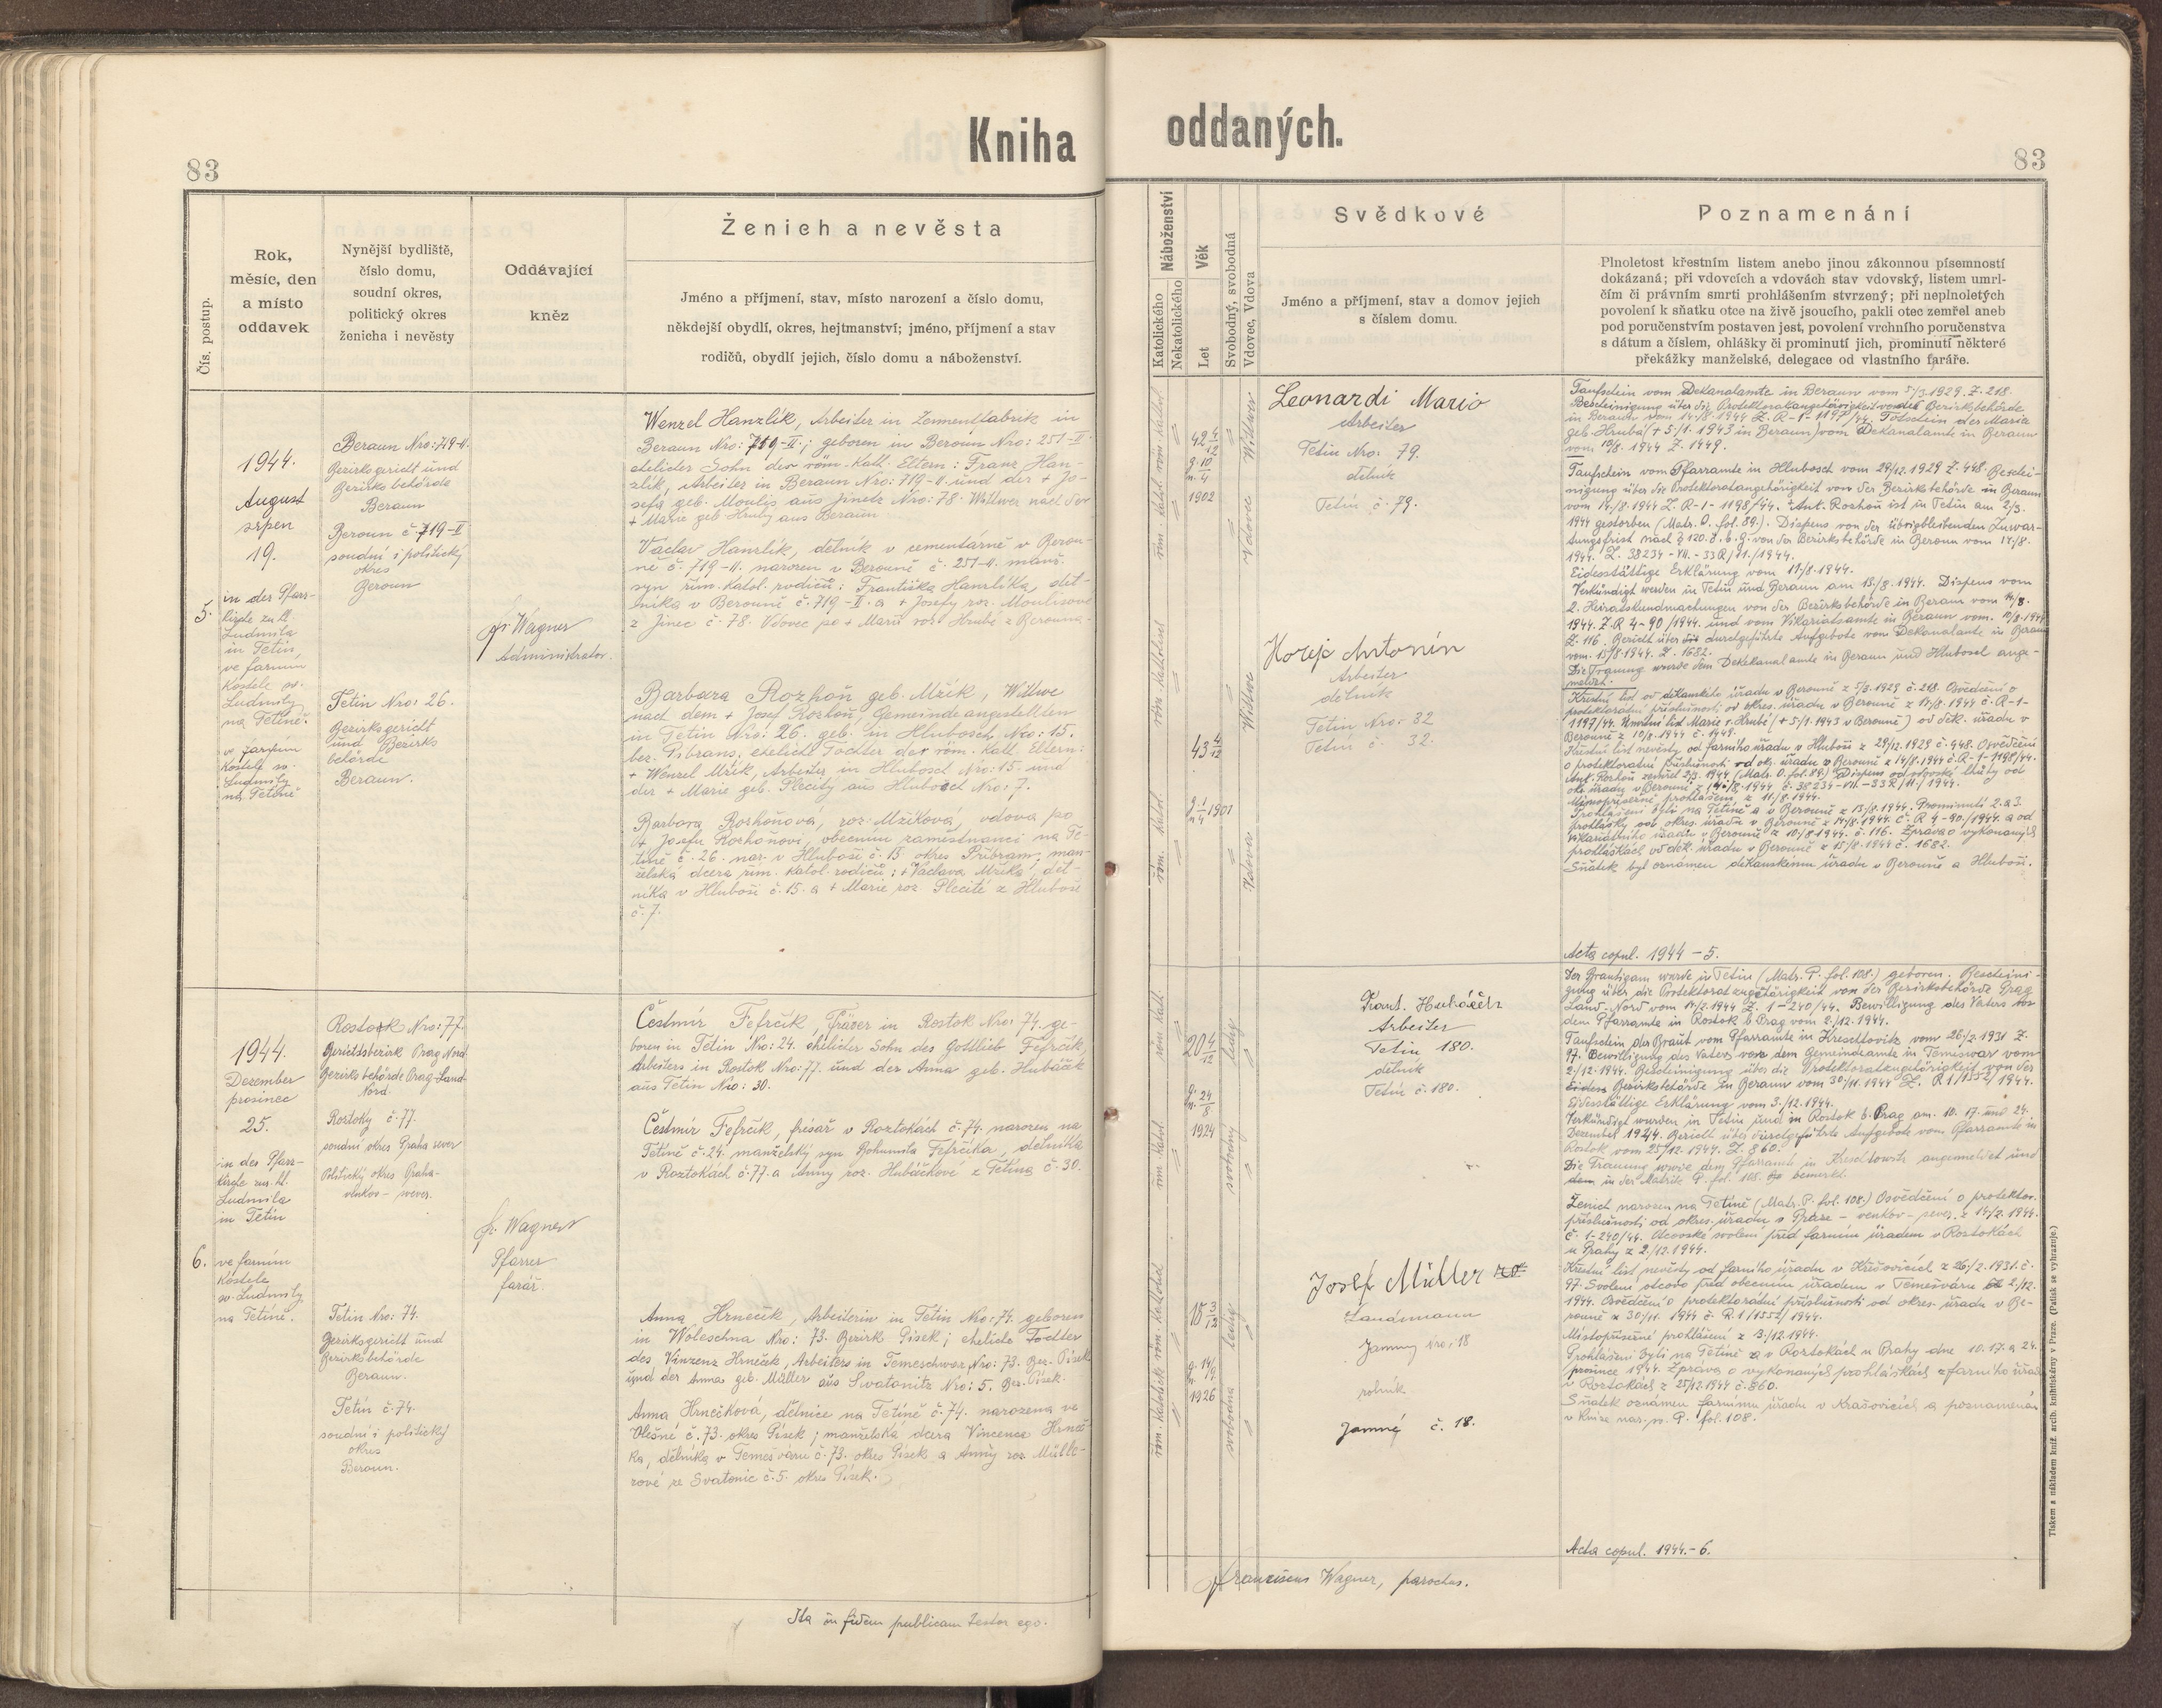 Kniha
oddaných.
83
83
Čís. postup.
Rok,
měsíc, den
a místo
oddavek
Nynější bydliště,
číslo domu,
soudní okres,
politický okres
ženicha i nevěsty
Oddávající
kněz
Ženich a nevěsta
Jméno a příjmení, stav, místo narození a číslo domu,
někdejší obydlí, okres, hejtmanství; jméno, příjmení a stav
rodičů, obydlí jejich, číslo domu a náboženství.
Náboženství
Katolického
Nekatolického
Věk
Let
Svobodný, svobodná
Vdovec, Vdova
Svědkové
Jméno a příjmení, stav a domov jejich
s číslem domu.
Poznamenání
Plnoletost křestním listem anebo jinou zákonnou písemností
dokázaná; při vdovcích a vdovách stav vdovský, listem umrl-
čím či právním smrti prohlášením stvrzený; při neplnoletých
povolení k sňatku otce na živě jsoucího, pakli otec zemřel aneb
pod poručenstvím postaven jest, povolení vrchního poručenstva
s dátum a číslem, ohlášky či prominutí jich, prominutí některé
překážky manželské, delegace od vlastního faráře.
5.
1944.
August
srpen
19.
in der Pfarr-
kirche zu hl.
Ludmila
in Tetin,
ve farním
kostele sv.
Ludmily
na Tetíně.
v farním
kostele sv.
Ludmily
na Tetíně
Beraun Nro: 719-II.
Bezirksgericht und
Bezirksbehörde
Beraun
Beroun č. 719-II
soudní i politický
okres
Beroun
Tetin Nro: 26.
Bezirksgericht
und Bezirks
behörde
Beraun.
fr. Wagner
Administrator.
Wenzel Hanzlík, Arbeiter in Zementfabrik in
Beraun Nro: 719-II.; geboren in Beroun Nro: 251-II.
ehelicher Sohn der röm. Kath. Eltern: Franz Han-
zlík, Arbeiter in Beraun Nro: 719-II. und der + Jo-
sefa geb. Moulis aus Jinetz Nro: 78. Wittwer nach der
+ Marie geb Hrubý aus Beraun.
Václav Hanzlík, dělník v cementárně v Berou-
ně č. 719-II. narozen v Berouně č. 251-II. manž.
syn řím. katol. rodičů: Františka Hanzlíka, děl-
níka v Berouně č. 719-II. a + Josefy roz. Moulisové
z Jinec č. 78. Vdovec po + Marii roz. Hrubé z Berouna.
Barbara Rozhoň geb. Mžik, Wittwe
nach dem + Josef Rozhoň, Gemeindeangestellten
in Tetin Nro: 26. geb. in Hlubosch Nro: 15.
bez. Pibrans, eheliche Tochter der röm. Kath. Eltern:
+ Wenzel Mžik, Arbeiter in Hlubosch Nro: 15. und
der + Marie geb. Plecitý aus Hlubosch Nro: 7.
Barbora Rozhoňová, roz. Mžiková, vdova po
+ Josefu Rozhoňovi, obecním zaměstnanci na Te-
tíně č. 26. nar. v Hluboši č. 15. okres Příbram, man-
želská dcera řím. katol. rodičů: + Václava Mžika, děl-
níka v Hluboši č. 15. a + Marie roz. Plecité z Hluboše
č. 7.
röm. kathol.
řím. katol.
42 4/12
g. 10/4
1902
Wittwer
Vdovec
43 4/12
1901
Wittwe
Leonardi Mario
Arbeiter
Tetin Nro: 79.
dělník
Tetín č. 79.
Hořejc Antonín
Arbeiter
dělník
Tetin Nro: 32
Tetín č. 32.
Taufschein vom Dekanalamte in Beraun vom 5./3.1929. Z. 218.
Bescheinigung über die Protektoratsangehörigkeit von der Bezirksbehörde
in Beraun vom 14./8. 1944 Z. R-1-1197/44. Totschein der Marie
geb. Hrubá (+ 5./1. 1943 in Beraun) vom Dekanalamte in Beraun
vom 10/8. 1944 Z. 1449.
Taufschein vom Pfarramte in Hlubosch vom 29/12. 1929 Z. 448. Beschei-
nigung über die Protektoratangehörigkeit von der Bezirksbehörde in Beraun
vom 14./8. 1944 Z. R-1-1198/44. Ant. Rozhoň ist in Tetín am 2/3.
1944 gestorben (Matr. O. fol. 89.). Dispens von der übrigbleibenden Zuwar-
tungsfrist nach § 120. d. b. G. von der Bezirksbehörde in Beroun vom 14./8.
1944. Z. 38234-VII.-33R/11./1944.
Eidesstättige Erklärung vom 11/8. 1944.
Verkündigt werden in Tetin und Beraun am 13./8. 1944. Dispens vom
2. Heiratskundmachungen von der Bezirksbehörde in Beraun vom 14/8.
1944. Z. R 4-90/1944. und vom Vikariatsamte in Beraun vom. 10/8. 1944
Z. 116. Bericht über die durchgeführte Aufgebote vom Dekanalamte in Beraun
vom. 15/8. 1944. Z. 1682.
Die Trauung wurde dem Dekekanalamte in Beraun und Hlubosch ange-
meldet.
Křestní list od děkanského úřadu v Berouně z 5/3. 1929 č. 218. Osvědčení o
protektorátní příslušnosti od okres. úřadu v Berouně z 14/8. 1944 č. R-1-
1197/44. Úmrtní list Marie r. Hrubé (+ 5/1. 1943 v Berouně) od děk. úřadu v
Berouně z 10/8. 1944 č. 1449.
Křestní list nevěsty od farního úřadu v Hluboši z 29/12. 1929 č. 448. Osvědčení
o protektorátní příslušnosti od okr. úřadu v Berouně z 14/8. 1944 č. R-1-1198/44.
Ant. Rozhoň zemřel 2/3. 1944. (Matr. O. fol. 89.) Dispens od vdovské lhůty od
okr. úřadu v Berouně z 14./8. 1944. č. 38234-VII.-33R/11/1944.
Místopřísežné prohlášení z 11/8. 1944.
Prohlášeni byli na Tetíně a v Berouně z 13/8. 1944. Prominutí 2. a 3.
prohlášky od okres. úřadu v Berouně z 14/8. 1944. č. R 4-90./1944. a od
vikariátního úřadu v Berouně z 10/8. 1944. č. 116. Zpráva o vykonaných
prohláškách od děk. úřadu v Berouně z 15/8. 1944 č. 1682.
Sňatek byl oznámen děkanskému úřadu v Berouně a Hluboši.
Acta copul. 1944-5.
6.
1944.
Dezember
prosinec
25.
in der Pfarr-
kirche zur hl.
Ludmila
in Tetin
ve farním
kostele
sv. Ludmily
na Tetíně.
Rostock Nro: 77.
Gerichtsbezirk Prag Nord
Bezirksbehörde Prag-Land-
Nord.
Roztoky č. 77.
soudní okres Praha sever
Politický okres Praha-
venkov-sever.
Tetin Nro: 74.
Bezirksgericht und
Bezirksbehörde
Beraun.
Tetín č. 74.
soudní i politický
okres
Beroun.
fr. Wagner
Pfarrer
farář.
Čestmír Fefrčík, Fräser in Rostok Nro: 74. ge-
boren in Tetin Nro: 24. ehelicher Sohn des Gottlieb Fefrčík,
Arbeiters in Rostok Nro: 77. und der Anna geb. Hubáček
aus Tetin Nro: 30.
Čestmír Fefrčík, frésař v Roztokách č. 74. narozen na
Tetíně č. 24. manželský syn Bohumila Fefrčíka, dělníka
v Roztokách č. 77. a Anny roz. Hubáčkové z Tetína č. 30.
Anna Hrneček, Arbeiterin in Tetin Nro: 74. geboren
in Woleschna Nro: 73. Bezirk Pisek; eheliche Tochter
des Vinzenz Hrneček, Arbeiters in Temeschwar Nro: 73. Bez. Pisek
und der Anna geb. Müller aus Swatonitz Nro: 5. Bez. Pisek.
Anna Hrnečková, dělnice na Tetíně č. 74. narozena ve
Olešné č. 73. okres Písek; manželská dcera Vincence Hrneč-
ka, dělníka v Temešváru č. 73. okres Písek a Anny roz. Mülle-
rové ze Svatonic č. 5. okres Písek.
20 4/12
g. 24/8
1924
ledig
svobodný
18 3/12
g. 14/9.
1926
ledig
svobodná
Frant. Hubáček
Arbeiter
Tetin 180.
dělník
Tetín č. 180.
Josef Müller
Landmann
Jamny Nro: 18
rolník
Jamný č. 18.
Der Bräutigam wurde in Tetin (Matr. P. fol. 108.) geboren. Bescheini-
gung über die Protektoratzugehörigkeit von der Bezirksbehörde Prag
Land-Nord vom 14/2. 1944 Z. 1-240/44. Bewilligung des Vaters vor
dem Pfarramte in Rostok b. Prag vom 2./12. 1944.
Taufschein der Braut vom Pfarramte in Kreschtovitz vom 26/2. 1931 Z.
97. Bewilligung des Vaters vor dem Gemeindeamte in Temeswar vom
2./12. 1944. Bescheinigung über die Protektoratzugehörigkeit von der
Bezirksbehörde in Beraun vom 30./11. 1944 Z. R 1/1552/1944.
Eidesstättige Erklärung vom 3./12. 1944.
Verkündigt wurden in Tetin und in Rostok b. Prag am. 10. 17. und 24.
Dezember 1944. Bericht über durchgeführte Aufgebote vom Pfarramte in
Rostok vom 25/12. 1944. Z. 860.
Die Trauung wurde dem Pfarramte in Kreschtowitz angemeldet und
in der Matrik P. fol. 108. bemerkt.
Ženich narozen na Tetíně (Matr. P. fol. 108.) Osvědčení o protektor.
příslušnosti od okres. úřadu v Praze-venkov-sever z 14/2. 1944.
č. 1-240/44. Otcovské svolení před farním úřadem v Roztokách
u Prahy z 2./12. 1944.
Křestní list nevěsty od farního úřadu v Křešovicích z 26./2. 1931. č.
97. Svolení otcovo před obecním úřadem v Temešváru 2./12.
1944. Osvědčení o protektorátní příslušnosti od okres. úřadu v Be-
rouně z 30/11. 1944 č. R. 1/1552/1944.
Místopřísežné prohlášení z 3./12. 1944.
Prohlášeni byli na Tetíně a v Roztokách u Prahy dne 10. 17. a 24.
prosince 1944. Zpráva o vykonaných prohláškách z farního úřadu
v Roztokách z 25/12. 1944 č. 860.
Sňatek oznámen farnímu úřadu v Krašovicích a poznamenán
v knize nar. P. fol. 108.
Acta copul. 1944.-6.
Ita in fidem publicam testor ego.
Franciscus Wagner, parochus.
Tiskem a nákladem kníž. arcib. knihtiskárny v Praze. (Patisk se vyhrazuje.)